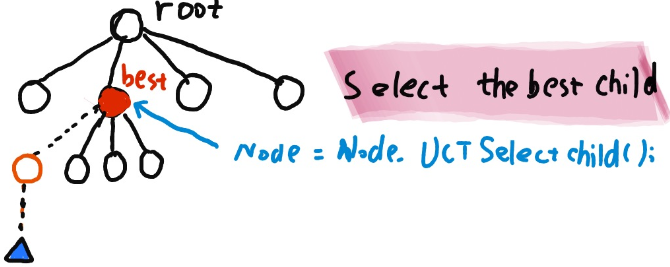 root
best
Select the best child
Node = Node. UCTSelectchild();